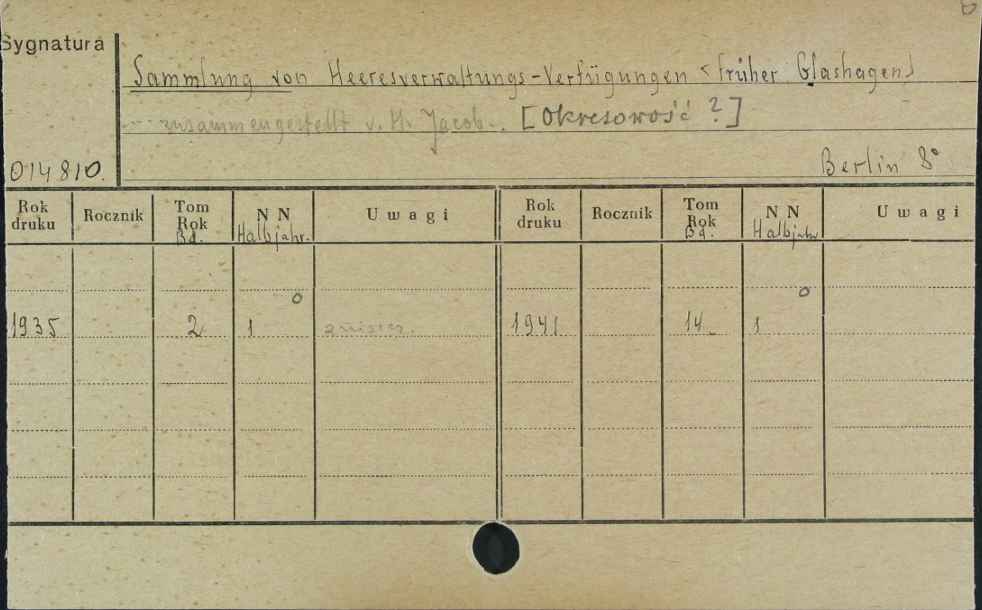 Sygnatura
Sammlung von Heeresverwaltungs-Verfügungen <früher Glashagen>
zusammengestellt v. H. Jacob. [Okresowość ?]
014810.
Berlin 8°
Rok druku Rocznik Tom Rok Bd. NN Halbjahr. Uwagi Rok druku Rocznik Tom Rok Bd. NN Halbjahr Uwagi
1935 2 1 1941 14 1